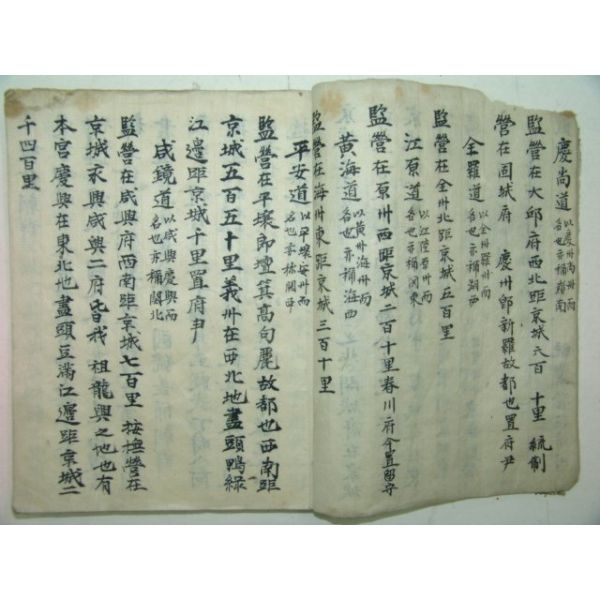 慶尚道以慶州尚州兩名也亦稱嶺南
監營在大邱府西北距京城六百 十里 統制
營在固城府 慶州卽新羅故都也置府尹
全羅道以全州羅州兩名也亦稱湖西
監營在全州北距京城五百里
江原道以江陵原州兩名也亦稱関東
監營在原州西距京城二百十里春川府今置留守
黄海道以黄州海州兩名也亦稱海西
監營在海州東距京城三百十里
平安道以平壤安州兩名也亦稱関西
監營在平壤即壇箕高句麗故都也西南距
京城五百五十里義州在西北地盡頭鴨緑
江邊距京城千里置府尹
咸鏡道以咸興慶興兩名也亦稱関北
監營在咸興府西南距京城七百里 按撫營在
京城永興咸興二府皆我 祖龍興之地也有
本宮慶興在東北地盡頭豆滿江邊距京城二
千四百里